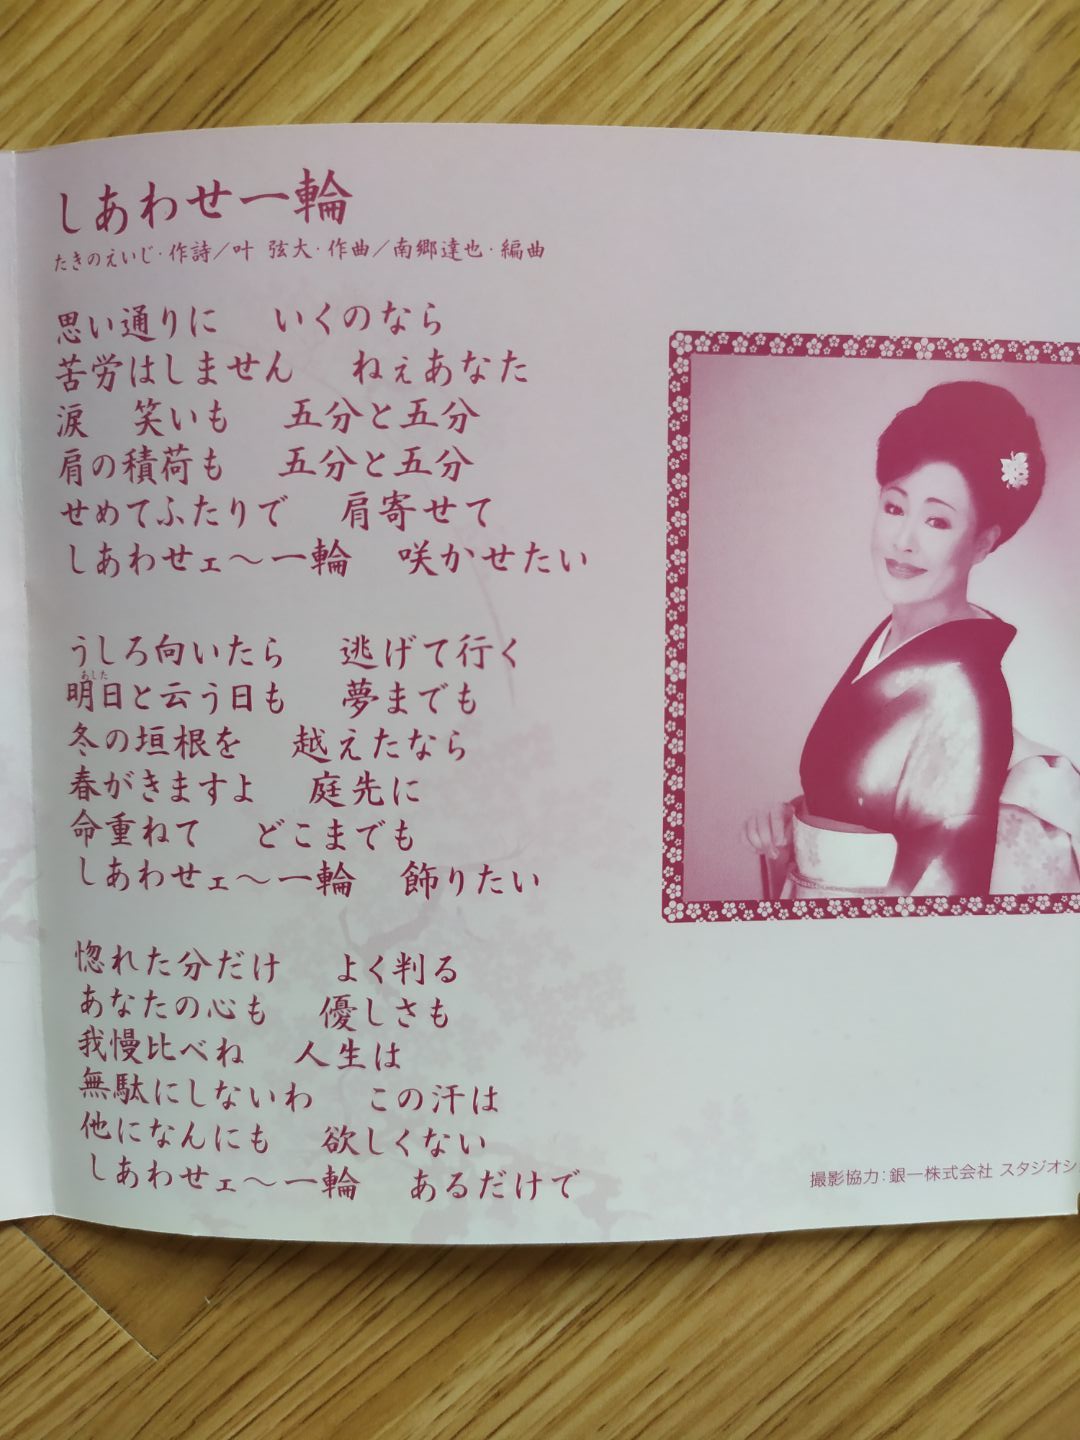 しあわせ一輪
たきのえいじ・作詩／叶 弦大・作曲／南郷達也・編曲
思い通りに　いくのなら
苦労はしません　ねぇあなた
涙　笑いも　五分と五分
肩の積荷も　五分と五分
せめてふたりで　肩寄せて
しあわせェ～一輪　咲かせたい
うしろ向いたら　逃げて行く
あした
明日と云う日も　夢までも
冬の垣根を　越えたなら
春がきますよ　庭先に
命重ねて　どこまでも
しあわせェ～一輪　飾りたい
惚れた分だけ　よく判る
あなたの心も　優しさも
我慢比べね　人生は
無駄にしないわ　この汗は
他になんにも　欲しくない
しあわせェ～一輪　あるだけで
撮影協力：銀一株式会社 スタジオシ